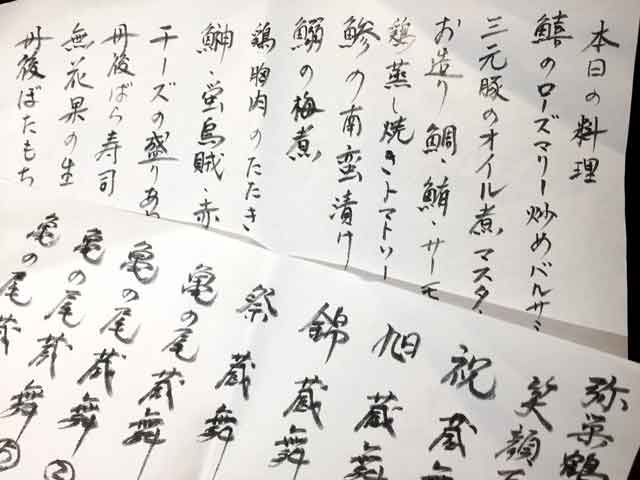 本日の料理
鱚のローズマリー炒めバルサミ
三元豚のオイル煮マスタ
お造り 鯛・鮪・サーモ
鶏蒸し焼きトマトソー
鯵の南蛮漬け
鰯の梅煮
鶏胸肉のたたき
鰤・蛍烏賊・赤
チーズの盛りあわ
丹後ばら寿司
無花果の生
丹後ぼたもち
弥栄鶴
笑顔百
祝蔵舞
旭蔵舞
錦蔵舞
祭蔵舞
亀の尾蔵舞
亀の尾蔵舞
亀の尾蔵舞②
亀の尾蔵舞③